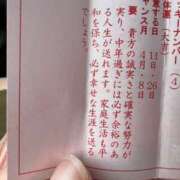 ッキーナンバー（4）
意する日　11日・26日
ャンス月　4月・8月
体運（大吉）
要　貴方の誠実さと確実な努力が
実り、中年過ぎには必ず余裕のあ
る人生が送れます。家庭生活も平
和を保ち、必ず幸せな生涯を送る